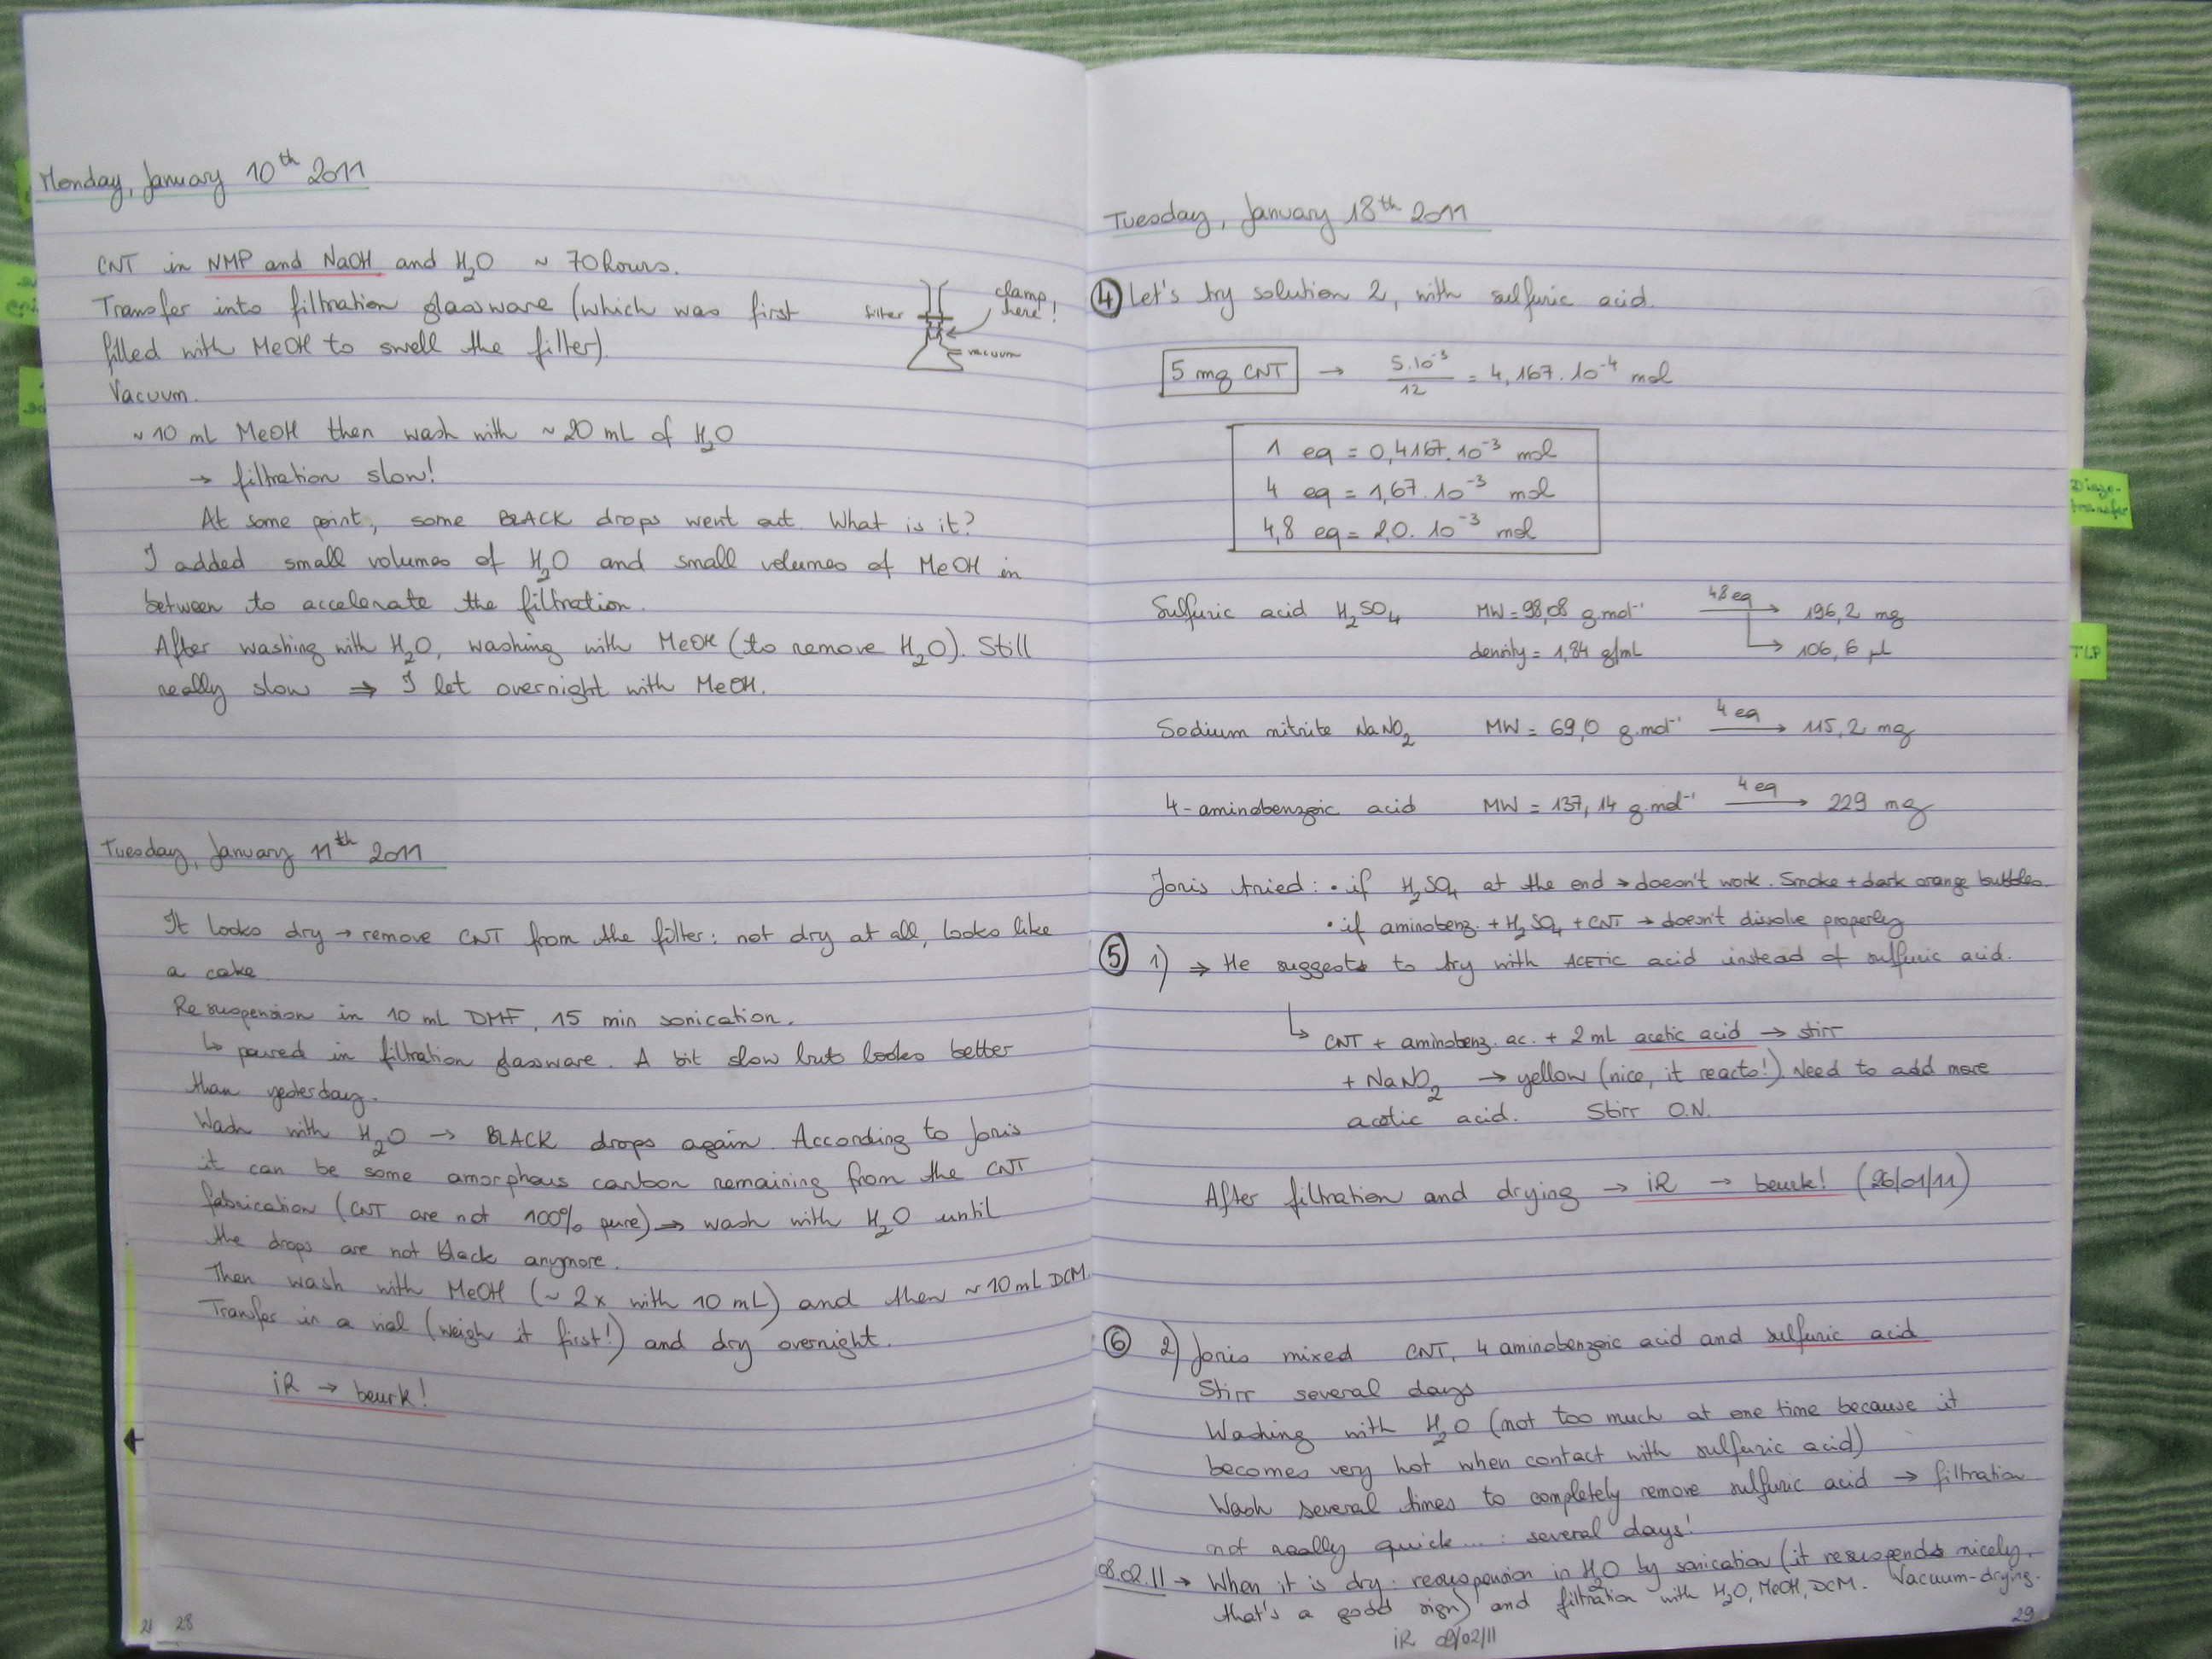 Monday, January 10th 2011
CNT in NMP and NaOH and H2O ~ 70 hours.
Transfer into filtration glassware (which was first
filled with MeOH to swell the filter).
filter
clamp
here!
vacuum
Vacuum.
~ 10 mL MeOH then wash with ~ 20 mL of H2O
→ filtration slow!
At some point, some BLACK drops went out. What is it?
I added small volumes of H2O and small volumes of MeOH in
between to accelerate the filtration.
After washing with H2O, washing with MeOH (to remove H2O). Still
really slow ⇒ I let overnight with MeOH.
Tuesday, January 11th 2011
It looks dry → remove CNT from the filter: not dry at all, looks like
a cake.
Resuspension in 10 mL DMF, 15 min sonication.
↳ poured in filtration glassware. A bit slow but looks better
than yesterday.
Wash with H2O → BLACK drops again. According to Joris
it can be some amorphous carbon remaining from the CNT
fabrication (CNT are not 100% pure) → wash with H2O until
the drops are not black anymore.
Then wash with MeOH (~ 2x with 10 mL) and then ~ 10 mL DCM.
Transfer in a vial (weigh it first!) and dry overnight.
iR → beurk!
28
Tuesday, January 18th 2011
④ Let's try solution 2, with sulfuric acid.
5 mg CNT → 5.10-3 / 12 = 4,167.10-4 mol
1 eq = 0,4167.10-3 mol
4 eq = 1,67.10-3 mol
4,8 eq = 2,0.10-3 mol
Sulfuric acid H2SO4 MW = 98,08 g.mol-1 4,8 eq → 196,2 mg
density = 1,84 g/mL ↳ 106,6 µl
Sodium nitrite NaNO2 MW = 69,0 g.mol-1 4 eq → 115,2 mg
4-aminobenzoic acid MW = 137,14 g.mol-1 4 eq → 229 mg
Joris tried: • if H2SO4 at the end → doesn't work. Smoke + dark orange bubbles.
• if aminobenz. + H2SO4 + CNT → doesn't dissolve properly
⑤ 1) ⇒ He suggests to try with ACETIC acid instead of sulfuric acid.
↳ CNT + aminobenz. ac. + 2 mL acetic acid → stirr
+ NaNO2 → yellow (nice, it reacts!). Need to add more
acetic acid. Stirr O.N.
After filtration and drying → iR → beurk! (26/01/11)
⑥ 2) Joris mixed CNT, 4 aminobenzoic acid and sulfuric acid
Stirr several days
Washing with H2O (not too much at one time because it
becomes very hot when contact with sulfuric acid)
Wash several times to completely remove sulfuric acid → filtration
not really quick ... : several days!
08.02.11 → When it is dry: resuspension in H2O by sonication (it resuspends nicely,
that's a good sign) and filtration with H2O, MeOH, DCM. Vacuum-drying.
iR 09/02/11
29
Diazo-
transfer
TLP